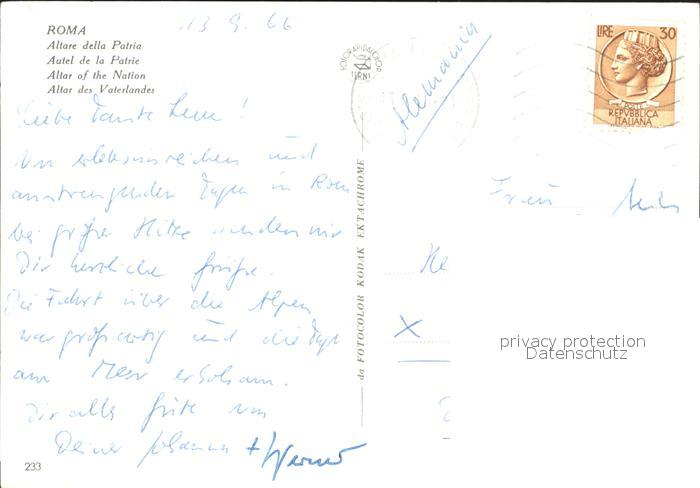 13 9. 66
ROMA
Altare della Patria
Autel de la Patrie
Altar of the Nation
Altar des Vaterlandes
Liebe Tante Leni!
Von erlebnisreichen und
anstrengenden Tagen in Rom
bei großer Hitze senden wir
Dir herzliche Grüße.
Die Fahrt über die Alpen
war großartig und die Tage
am Meer erholsam.
Dir alles Gute von
Deiner Johanna + Werner
233
da FOTOCOLOR KODAK EKTACHROME
FOTORAPIDACOLOR
TERNI
Alemania
LIRE 30
POSTE
REPVBBLICA
ITALIANA
Frau
He
X
privacy protection
Datenschutz